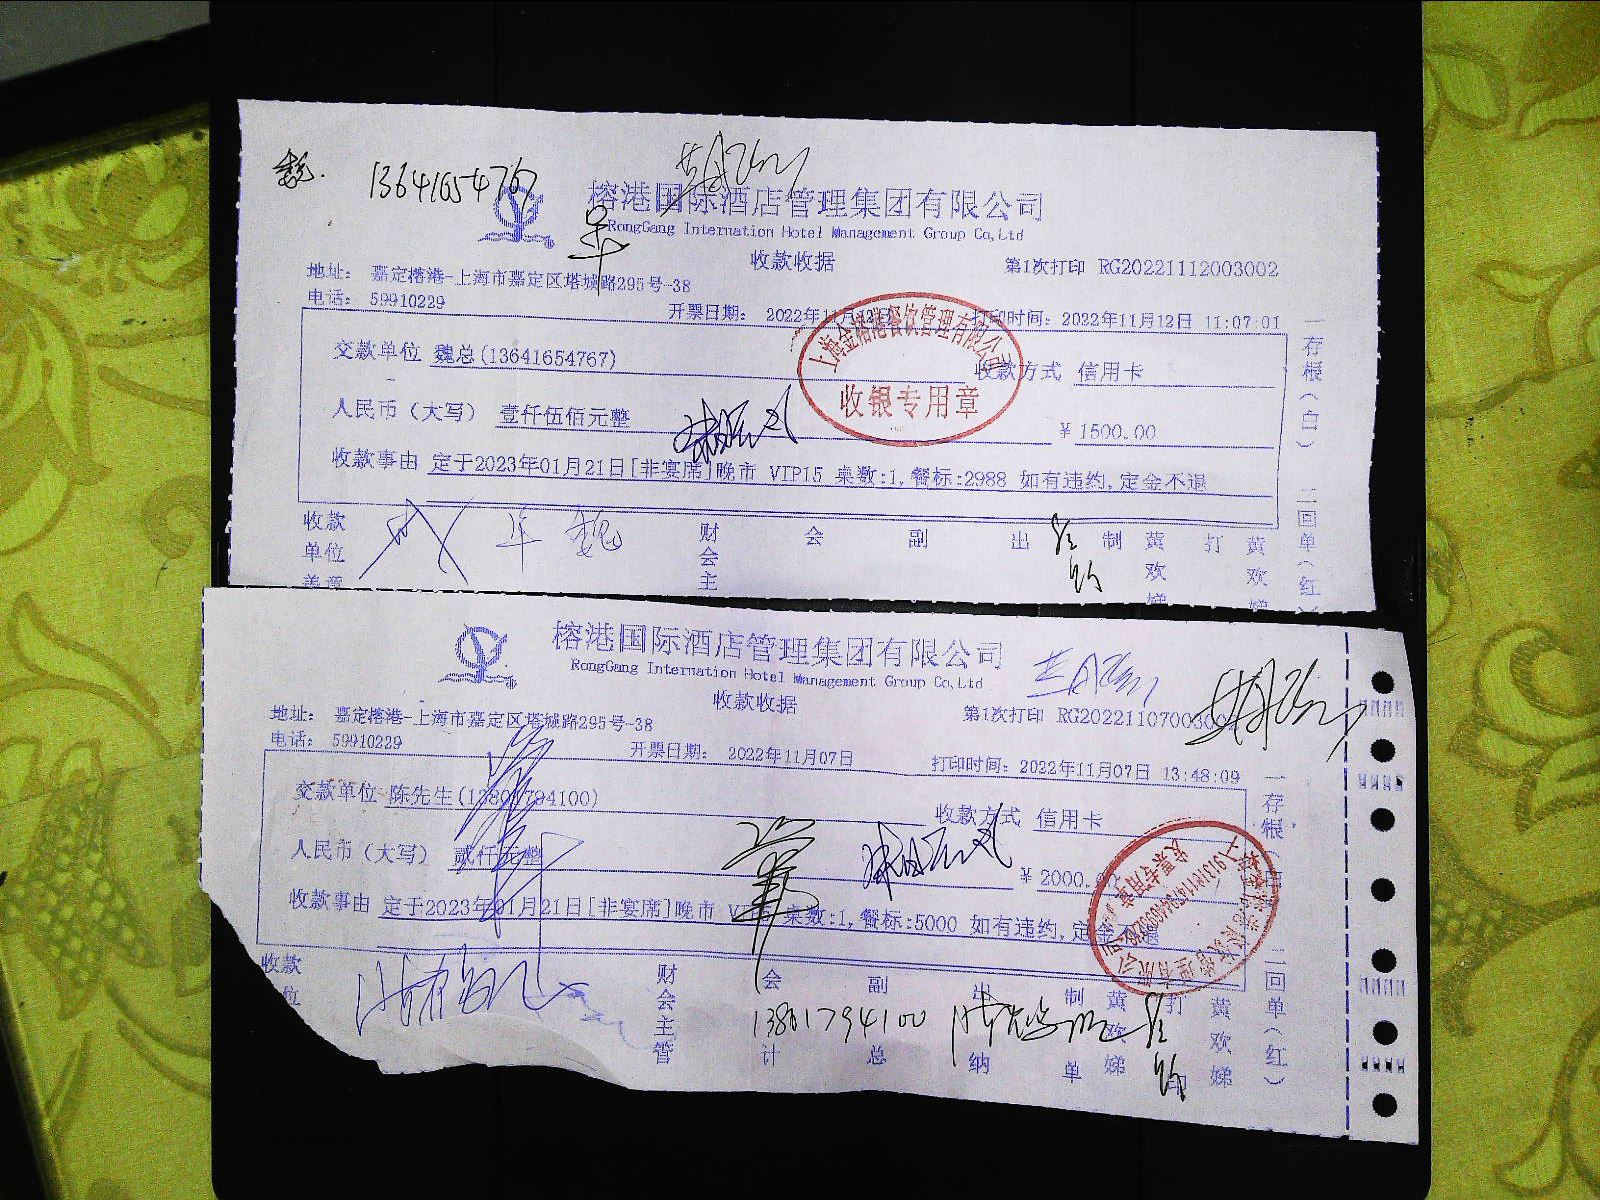 魏. 13641654767
榕港国际酒店管理集团有限公司
RongGang Internation Hotel Management Group Co,Ltd
收款收据
地址： 嘉定榕港-上海市嘉定区塔城路295号-38
第1次打印 RG20221112003002
电话： 59910229
开票日期： 2022年11月12日 打印时间：2022年11月12日 11:07:01
交款单位 魏总(13641654767) 收款方式 信用卡
上海金榕港餐饮管理有限公司
收银专用章
人民币（大写） 壹仟伍佰元整 ￥1500.00
收款事由 定于2023年01月21日[非宴席]晚市 VIP15 桌数:1,餐标:2988 如有违约,定金不退
一存根（白） 二回单（红）
收款单位盖章 魏 财会主 会 副 出 制 黄欢娣 打 黄欢娣
榕港国际酒店管理集团有限公司
RongGang Internation Hotel Management Group Co,Ltd
收款收据
地址： 嘉定榕港-上海市嘉定区塔城路295号-38
第1次打印 RG20221107003
电话： 59910229
开票日期： 2022年11月07日 打印时间：2022年11月07日 13:48:09
交款单位 陈先生(13801794100) 收款方式 信用卡
人民币（大写） 贰仟元整 ￥2000.00
收款事由 定于2023年01月21日[非宴席]晚市 桌数:1,餐标:5000 如有违约,定金不退
发票专用章
一存根（白） 二回单（红）
收款 位 财会主管 会计 副总 出纳 制单 黄欢娣 打印 黄欢娣
13801794100